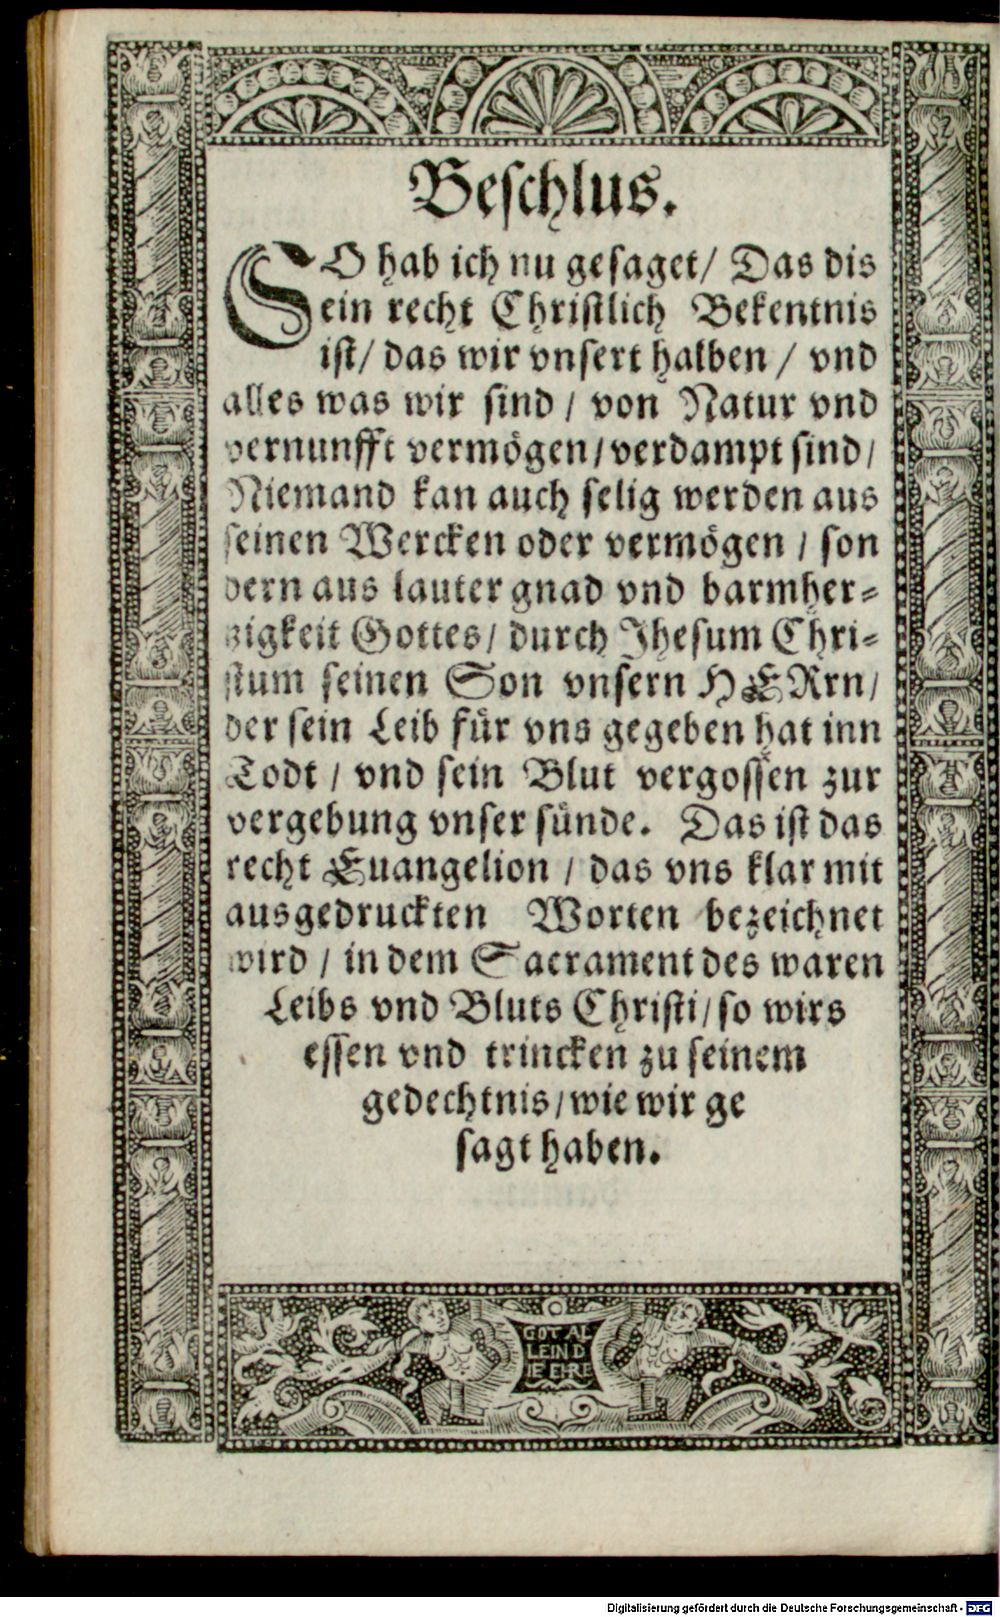 Beſchlus.
SO hab ich nu geſaget/ Das dis
ein recht Chriſtlich Bekentnis
iſt/ das wir vnſert halben / vnd
alles was wir ſind / von Natur vnd
vernunfft vermögen / verdampt ſind /
Niemand kan auch ſelig werden aus
ſeinen Wercken oder vermögen / ſon
dern aus lauter gnad vnd barmher-
zigkeit Gottes / durch Jheſum Chri-
ſtum ſeinen Son vnſern HERrn /
der ſein Leib für vns gegeben hat inn
Todt / vnd ſein Blut vergoſſen zur
vergebung vnſer ſünde. Das iſt das
recht Euangelion / das vns klar mit
ausgedruckten Worten bezeichnet
wird / in dem Sacrament des waren
Leibs vnd Bluts Chriſti / ſo wirs
eſſen vnd trincken zu ſeinem
gedechtnis / wie wir ge
ſagt haben.
GOT AL
LEIN D
IE EHRE
Digitalisierung gefördert durch die Deutsche Forschungsgemeinschaft - DFG